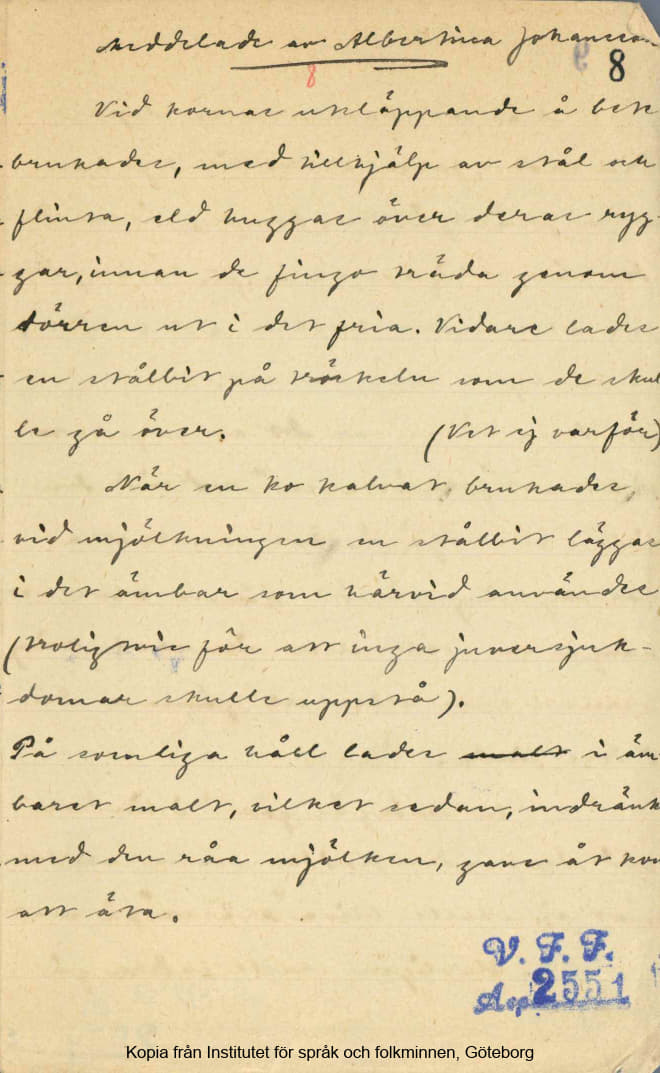 Meddelade av Albertina Johansson
8
8
Vid kornas utsläppande å bete
brukades, med tillhjälp av stål och
flinta, eld huggas över deras ryg-
gar, innan de fingo träda genom
dörren ut i det fria. Vidare lades
en stålbit på tröskeln som de skul
le gå över. (Vet ej varför)
När en ko kalvat, brukades,
vid mjölkningen en stålbit läggas
i det ämbar som härvid användes
(troligtvis för att inga juversjuk-
domar skulle uppstå).
På somliga håll lades malt i äm
baret malt, vilket sedan, indränkt
med den råa mjölken, gavs åt kon
att äta.
V. F. F.
Acp. 2551
Kopia från Institutet för språk och folkminnen, Göteborg